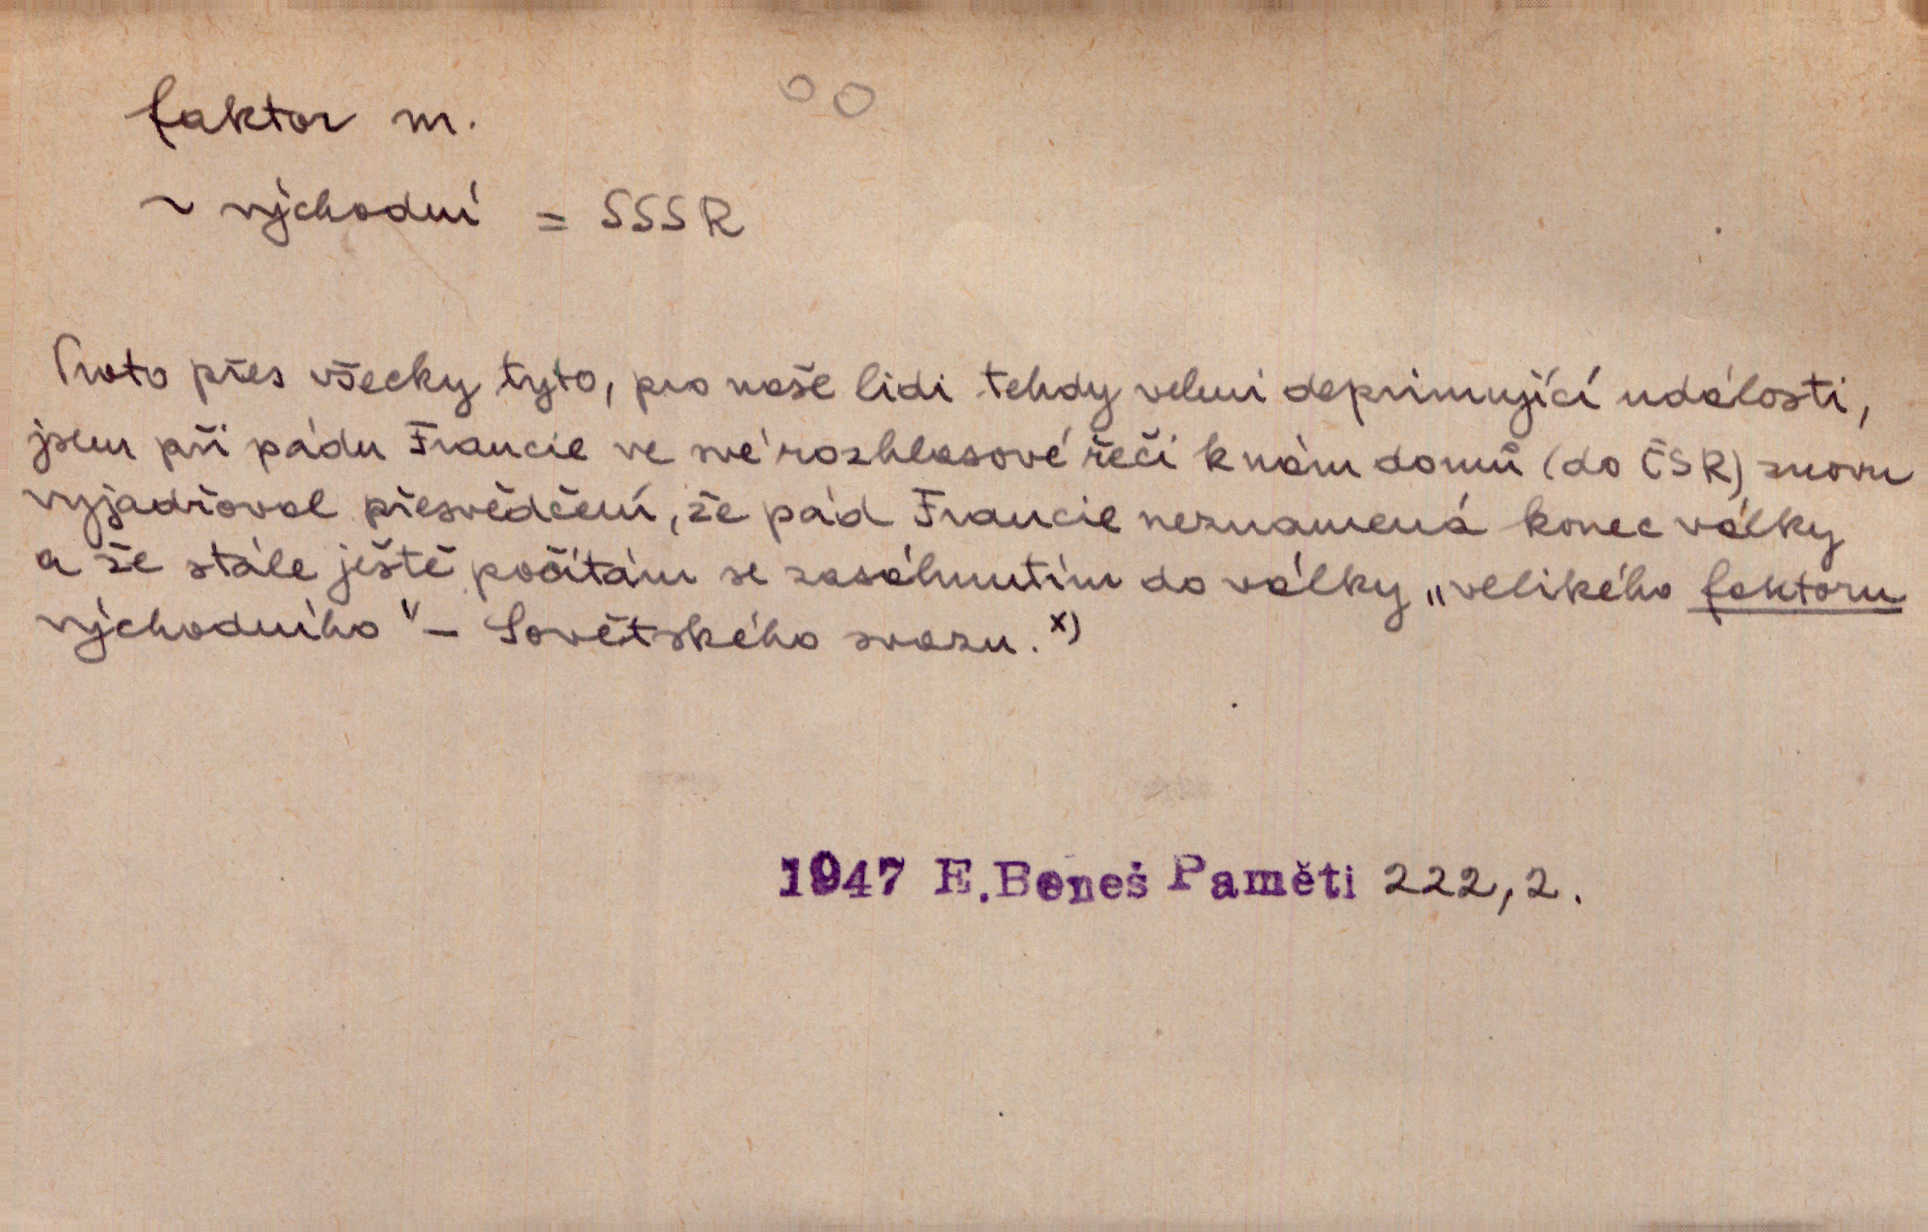 faktor m.
~ východní = SSSR
Proto přes všecky tyto, pro naše lidi tehdy velmi deprimující události,
jsem při pádu Francie ve své rozhlasové řeči k nám domů (do ČSR) znovu
vyjadřoval přesvědčení, že pád Francie neznamená konec války
a že stále ještě počítám se zasáhnutím do války „velikého faktoru
východního“ – Sovětského svazu. x)
1947 E. Beneš Paměti 222, 2.